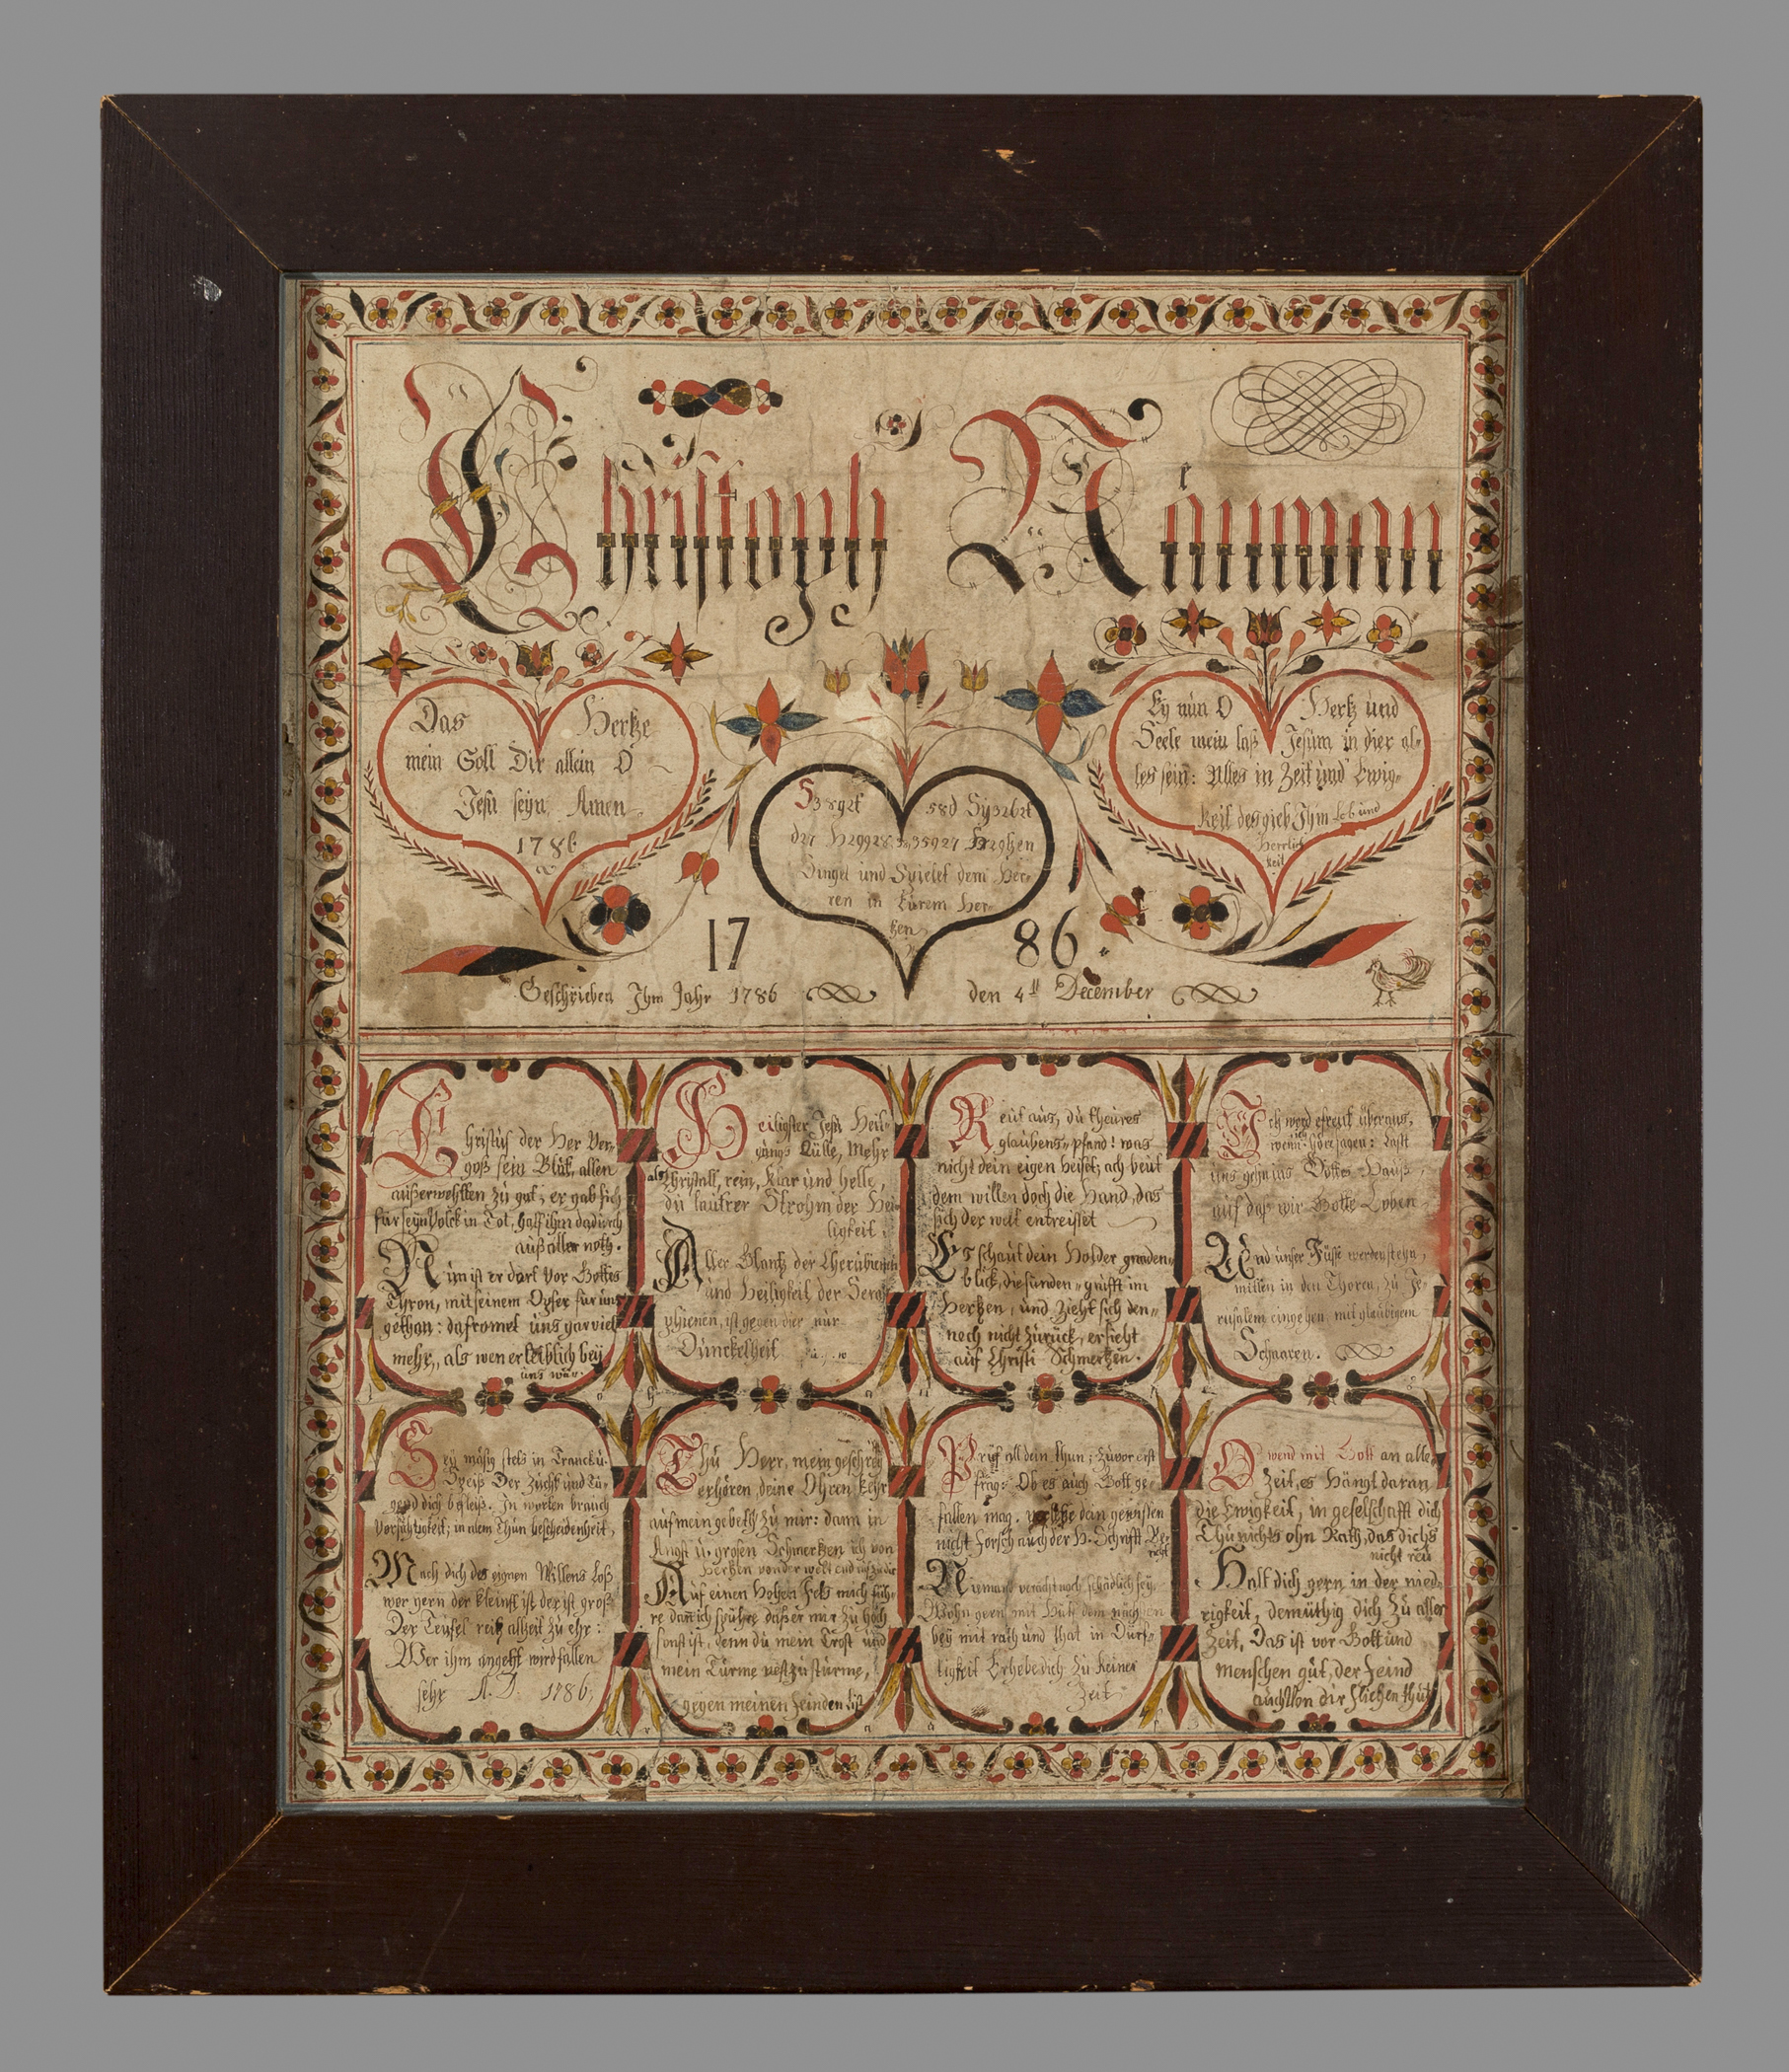 Christoph Nåuman
Das Hertze
mein Soll Dir allein O
Jesu seyn Amen
1786
Ey nun O Hertz und
Seele mein laß Jesum in dier al-
les sein: Alles in Zeit und Ewig-
keit des gieb Ihm Lob und
Herrlich
keit
S3892t 58d Sy32b2t
d27
Singet und Spielet dem Her-
ren in Eurem Her-
tzen
17 86
Geschrieben Ihm Jahr 1786 den 4ten December
Christus der Her Ver-
goß sein Blut, allen
außerwehlten zu gut; er gab sich
für seyn Volck in Tot, halff ihm dadurch
auß aller noth.
Nun ist er dort Vor Gottes
Thron, mit seinem Opfer für uns
gethan: da fromet uns gar viel
mehr, als wen er leiblich bey
uns wär.
Heiligster Jesu Heili-
gungs Qülle, Mehr
als Christall, rein, Klar und helle,
du lautrer Strohm der Hei-
ligkeit
Aller Glantz der Cherubienen
und Heiligkeit der Sera-
phienen, ist gegen dier nur
Dunckelheit u.s.w
Reut aus, du theures
glaubens-pfand! was
nicht dein eigen heiset; ach beut
dem willen doch die Hand, das
sich der welt entreisset
Es schaut dein Holder gnaden-
blick, die sünden-grüfft im
Hertzen, und zieht sich den-
noch nicht zurück, er sieht
auf Christi Schmertzen.
Ich werd erfreut überaus,
wenn ich höer sagen: Last
uns gehn ins Gottes Hauß,
auf daß wir Gotte Loben
Und unser Füsse werden stehn,
mitten in den Thoren, zu Je-
rusalem eingehen mit glaubigem
Schaaren.
Sey mäsig stets in Tranck u.
Speiß Der zucht und Tu-
gend dich befleiß. In worten brauch
Vorsichtigkeit; in alem Thun bescheidenheit,
Mach dich des eignen Willens Loß
wer gern der kleinst ist der ist groß
Der Teufel reitz allzeit zu ehr:
Wer ihm angeht wird fallen
sehr A.D. 1786,
Thu Herr, mein geschrey
erhören, deine Ohren kehr
auf mein gebeth zu mir: dann in
Angst u. grosen Schmertzen ich von
Hertzen von der welt end ruf zu dir
Auf einen Hohen Fels mich füh-
re dan ich spühre daß er mir zu hoch
sonst ist, denn du mein Trost und
mein Turme vest zu sturme,
gegen meinen Feinden bist
Prüf all dein thun; zuvor erst
frag: Ob es auch Gott ge-
fallen mag. verletze dein gewissen
nicht forsch auch der H. Schrifft Be-
richt
Niemand veracht noch schädlich sey,
Wohn gern mit Hülf dem nächsten
bey mit rath und that in Dürf-
tigkeit Erhebe dich zu keiner
Zeit
O wend mit Gott an alle
Zeit, es Hängt daran
die Ewigkeit, in geselschafft dich
Thu nichts ohn Rath, das dich's
nicht reu
Halt dich gern in der nied-
rigkeit, demüthig dich zu aller
Zeit, Das ist vor Gott und
menschen gut, der feind
auch Von dir fliehen thut